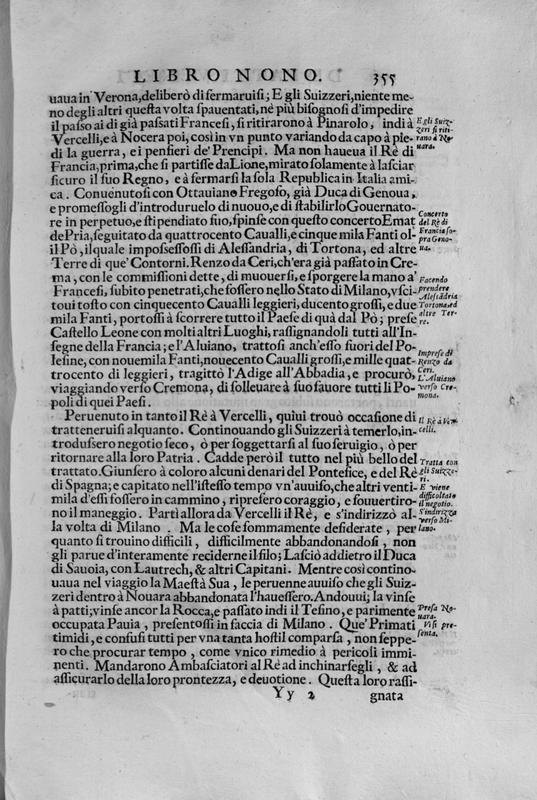 LIBRO NONO. 355
uaua in Verona, deliberò di fermaruisi; E gli Suizzeri, niente me-
no degli altri questa volta spauentati, nè più bisognosi d'impedire
il passo ai di già passati Francesi, si ritirarono à Pinarolo, indi à
Vercelli, e à Nocera poi, così in vn punto variando da capo à pie-
di la guerra, e i pensieri de' Prencipi. Ma non haueua il Rè di
Francia, prima, che si partisse da Lione, mirato solamente à lasciar
sicuro il suo Regno, e à fermarsi la sola Republica in Italia ami-
ca. Conuenutosi con Ottauiano Fregoso, già Duca di Genoua,
e promessogli d'introduruelo di nuouo, e di stabilirlo Gouernato-
re in perpetuo, e stipendiato suo, spinse con questo concerto Emat
de Pria, seguitato da quattrocento Caualli, e cinque mila Fanti ol-
il Pò, il quale impossessossi di Alessandria, di Tortona, ed altre
Terre di que' Contorni. Renzo da Ceri, ch'era già passato in Cre-
ma, con le commissioni dette, di muouersi, e sporgere la mano a'
Francesi, subito penetrati, che fossero nello Stato di Milano, vsci-
toui tosto con cinquecento Caualli leggieri, ducento grossi, e due
mila Fanti, portossi à scorrere tutto il Paese di quà dal Pò; prese
Castello Leone con molti altri Luoghi, rassignandoli tutti all'In-
segne della Francia; e l'Aluiano, trattosi anch'esso fuori del Po-
lesine, con nouemila Fanti, nouecento Caualli grossi, e mille quat-
trocento di leggieri, tragittò l'Adige all'Abbadia, e procurò,
viaggiando verso Cremona, di solleuare à suo fauore tutti li Po-
poli di quei Paesi.
Peruenuto in tanto il Rè à Vercelli, quiui trouò occasione di
tratteneruisi alquanto. Continouando gli Suizzeri à temerlo, in-
trodussero negotio seco, ò per soggettarsi al suo seruigio, ò per
ritornare alla loro Patria. Cadde però il tutto nel più bello del
trattato. Giunsero à coloro alcuni denari del Pontefice, e del Rè
di Spagna; e capitato nell'istesso tempo vn'auuiso, che altri venti-
mila d'essi fossero in cammino, ripresero coraggio, e souuertiro-
no il maneggio. Partì allora da Vercelli il Rè, e s'indirizzò al-
la volta di Milano. Ma le cose sommamente desiderate, per
quanto si trouino difficili, difficilmente abbandonandosi, non
gli parue d'interamente reciderne il filo; Lasciò addietro il Duca
di Sauoia, con Lautrech, & altri Capitani. Mentre così contino-
uaua nel viaggio la Maestà Sua, le peruenne auuiso che gli Suiz-
zeri dentro à Nouara abbandonata l'hauessero. Andouui; la vinse
à patti; vinse ancor la Rocca, e passato indi il Tesino, e parimente
occupata Pauia, presentossi in faccia di Milano. Que' Primati
timidi, e confusi tutti per vna tanta hostil comparsa, non seppe-
ro che procurar tempo, come vnico rimedio à pericoli immi-
nenti. Mandarono Ambasciatori al Rè ad inchinarsegli, & ad
assicurarlo della loro prontezza, e deuotione. Questa loro rassi-
Yy 2 gnata
E gli Suiz-
zeri si riti-
rano à No-
uara.
Concerto
del Rè di
Francia so-
pra Geno-
ua.
Facendo
prendere
Alessādria
Tortona, ed
altre Ter-
re.
Imprese di
Renzo da
Ceri.
L'Aluiano
verso Cre-
mona.
Il Rè à Ver-
celli.
Tratta con
gli Suizze-
ri.
E viene
difficoltato
il negotio.
S'indirizza
verso Mi-
lano.
Presa No-
uara.
Vi si pre-
senta.